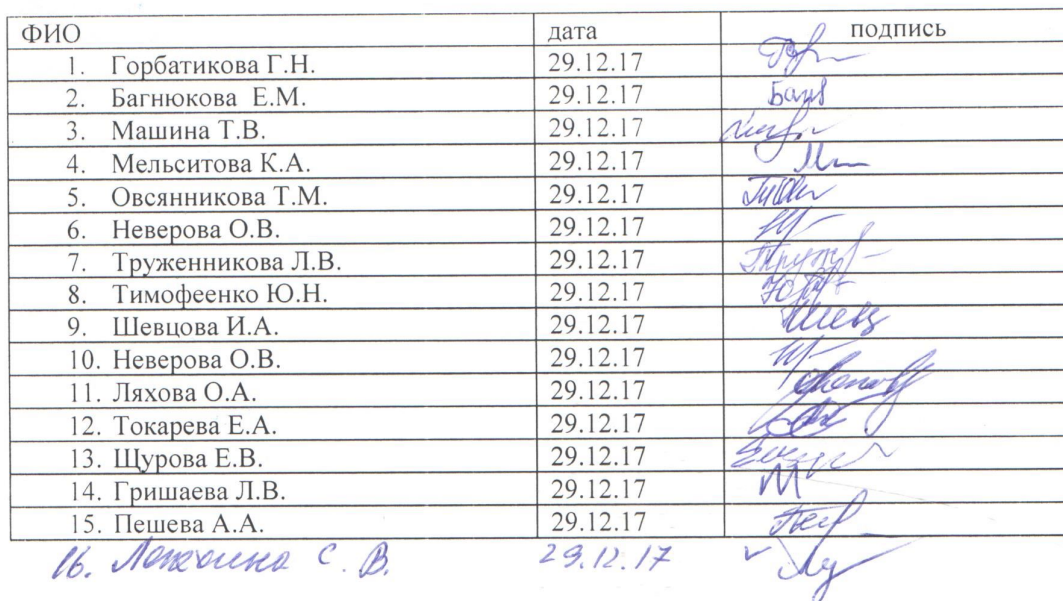 ФИО дата подпись
1. Горбатикова Г.Н. 29.12.17
2. Багнюкова Е.М. 29.12.17
3. Машина Т.В. 29.12.17
4. Мельситова К.А. 29.12.17
5. Овсянникова Т.М. 29.12.17
6. Неверова О.В. 29.12.17
7. Труженникова Л.В. 29.12.17
8. Тимофеенко Ю.Н. 29.12.17
9. Шевцова И.А. 29.12.17
10. Неверова О.В. 29.12.17
11. Ляхова О.А. 29.12.17
12. Токарева Е.А. 29.12.17
13. Щурова Е.В. 29.12.17
14. Гришаева Л.В. 29.12.17
15. Пешева А.А. 29.12.17
16. С. В. 29.12.17